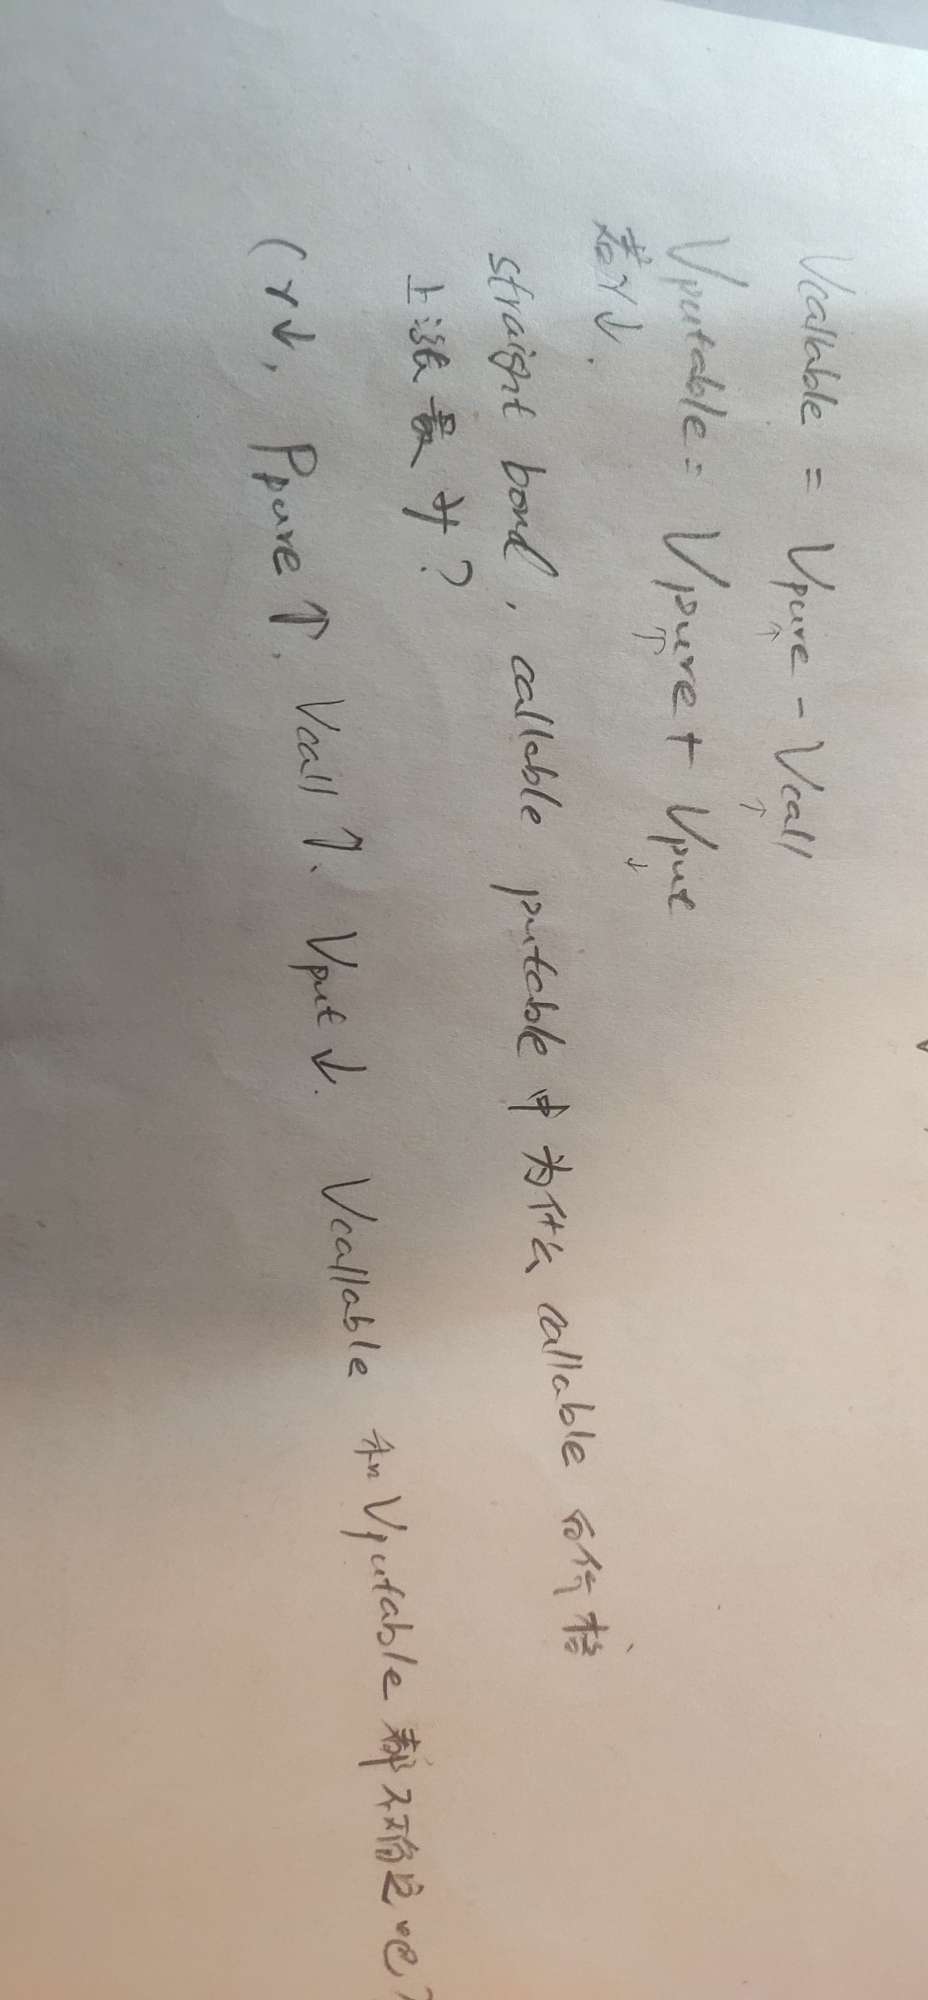 Vcallable = Vpure↑ - Vcall↑
Vputable = Vpure↑ + Vput↓
若r↓.
straight bond, callable putable 中为什么 callable 价格
上涨最少?
(r↓, Ppure↑, Vcall↑. Vput↓. Vcallable 和 Vputable 都不确定吧?